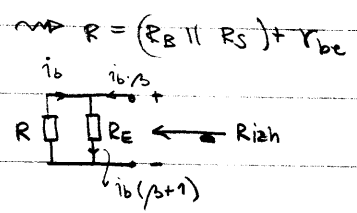 R = (RB || RS) + rbe
ib ib·β
+
R RE Rizh
-
ib(β+1)